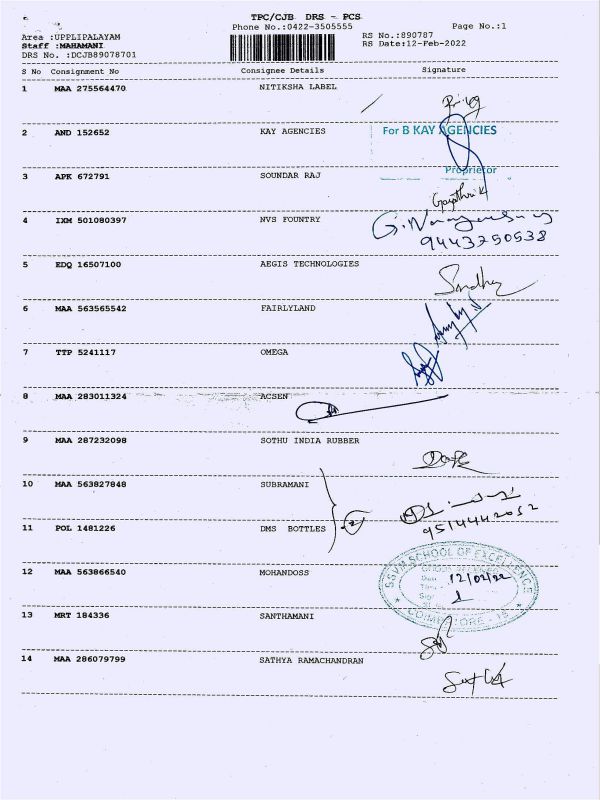 TPC/CJB DRS - PCS
Phone No.:0422-3505555
Page No.:1
Area :UPPLIPALAYAM
RS No.:890787
Staff :MAHAMANI
RS Date:12-Feb-2022
DRS No. :DCJB89078701
S No Consignment No Consignee Details Signature
1 MAA 275564470 NITIKSHA LABEL
2 AND 152652 KAY AGENCIES
For B KAY AGENCIES
Proprietor
3 APK 672791 SOUNDAR RAJ
Gayathri K
4 IXM 501080397 NVS FOUNTRY
9443750538
5 EDQ 16507100 AEGIS TECHNOLOGIES
6 MAA 563565542 FAIRLYLAND
7 TTP 5241117 OMEGA
8 MAA 283011324 ACSEN
9 MAA 287232098 SOTHU INDIA RUBBER
10 MAA 563827848 SUBRAMANI
9514442052
11 POL 1481226 DMS BOTTLES
12 MAA 563866540 MOHANDOSS
SSVM SCHOOL OF EXCELLENCE
12/02/22
13 MRT 184336 SANTHAMANI
14 MAA 286079799 SATHYA RAMACHANDRAN